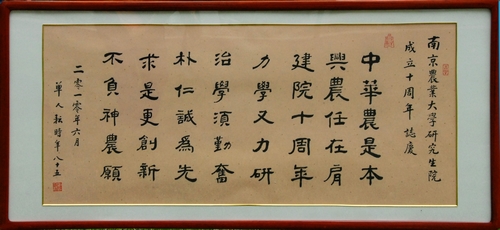 南京農業大學研究生院
成立十周年誌慶
中華農是本
興農任在肩
建院十周年
力學又力研
治學須勤奮
朴仁誠為先
求是更創新
不負神農願
二零一零年六月
單人耘時年八十五